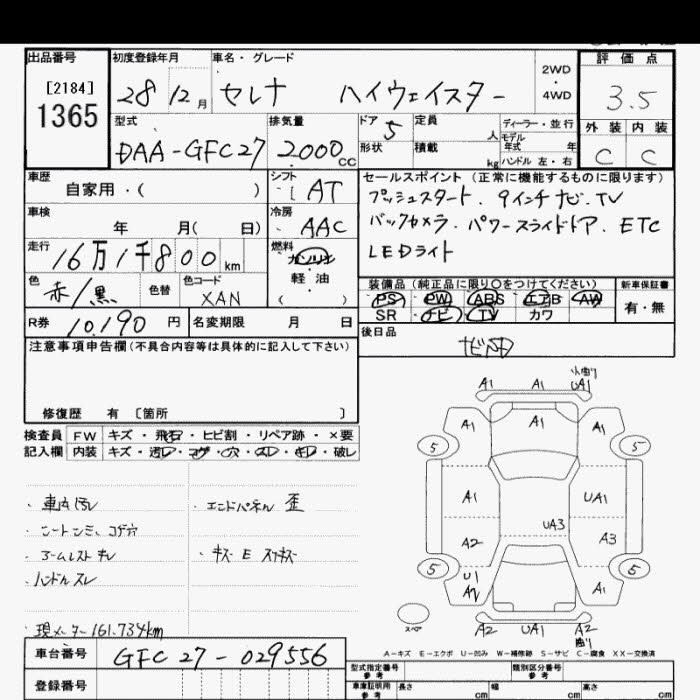 出品番号 初度登録年月 車名・グレード 2WD・4WD 評価点
[2184]
1365
28 12月 セレナ ハイウェイスター 3.5
型式 排気量 ドア 定員 ディーラー・並行 外装 内装
DAA-GFC27 2000cc 5 人 モデル年式 年 C C
形状 積載 kg ハンドル 左・右
車歴 シフト セールスポイント (正常に機能するものに限ります)
自家用・( ) AT プッシュスタート. 9インチナビ. TV
車検 冷房 バックカメラ. パワースライドドア. ETC
年 月( 日) AAC LEDライト
走行 燃料
16万1千800km ガソリン
軽・油
( )
色 色替 色コード
赤/黒 XAN
装備品(純正品に限り○をつけてください) 新車保証書
PS PW ABS エアB AW 有・無
SR ナビ TV カワ
R券 10,190円 名変期限 月 日 後日品
注意事項申告欄(不具合内容等は具体的に記入して下さい)
修復歴 有 〔箇所 〕
検査員 FW キズ・飛石・ヒビ割・リペア跡・×要
記入欄 内装 キズ・汚レ・コゲ・穴・スレ・キレ・破レ
・車内汚レ ・エンドパネル 歪
・シートシミ コゲ穴
・アームレスト キレ ・キズ E スリキズ
・ハンドル スレ
現メーター 161.734km
車台番号 GFC27-029556
登録番号
A1 A1 UA1
A1 A1 A1
5 5
A1 UA1
UA3
A2 A3
5 5
U1
A2 A1
スペア
A2 UA1 A2
曲り
A-キズ E-エクボ U-凹み W-補修跡 S-サビ C-腐食 XX-交換済
型式指定番号 参考 類別区分番号 参考
車庫証明用 参考 長さ cm 幅 cm 高さ cm